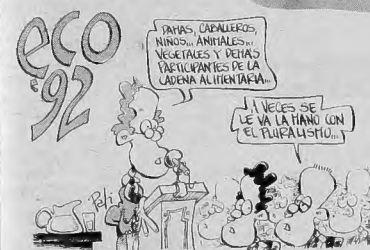 eco
92
DAMAS, CABALLEROS,
NIÑOS... ANIMALES...
VEGETALES Y DEMÁS
PARTICIPANTES DE LA
CADENA ALIMENTARIA...
A VECES SE
LE VA LA MANO CON
EL PLURALISMO...